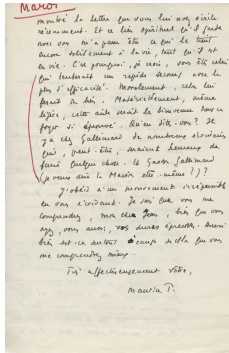 Maroi
montré la lettre que vous lui avez écrite
récemment. Et ce lien spirituel qu'il garde
avec vous m'a paru être ce qui le tient
encore solidement à la vie, tant qu'il est
en vie. C'est pourquoi, je crois, vous êtes celui
qui tenterait un rapide secours avec le
plus d'efficacité. Moralement, cela lui
ferait du bien. Matériellement, même
légère, cette aide serait la bienvenue dans ce
foyer si éprouvé. Qu'en dites-vous? Il
y a chez Gallimard de nombreux écrivains
qui, peut-être, seraient heureux de
faire quelque chose. Et Gaston Gallimard
(je veux dire la Maison elle-même?)?
J'obéis à un mouvement irrépressible
en vous écrivant. Je sais que vous me
comprendrez, mon cher Jean, bien que vous
ayez, vous aussi, vos dures épreuves. Aussi
bien est-ce surtout à cause de cela que vous
me comprendrez mieux.
Très affectueusement vôtre,